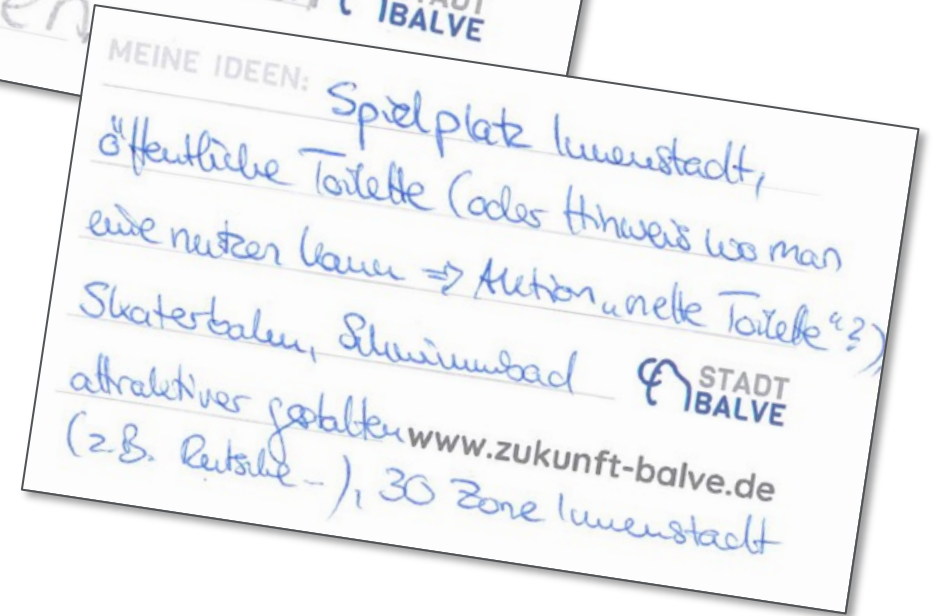 STADT
BALVE
MEINE IDEEN: Spielplatz Innenstadt,
öffentliche Toilette (oder Hinweis wo man
eine nutzen kann => Aktion „nette Toilette“?)
Skaterbahn, Schwimmbad
attraktiver gestalten
(z.B. Rutsche -), 30 Zone Innenstadt
STADT
BALVE
www.zukunft-balve.de